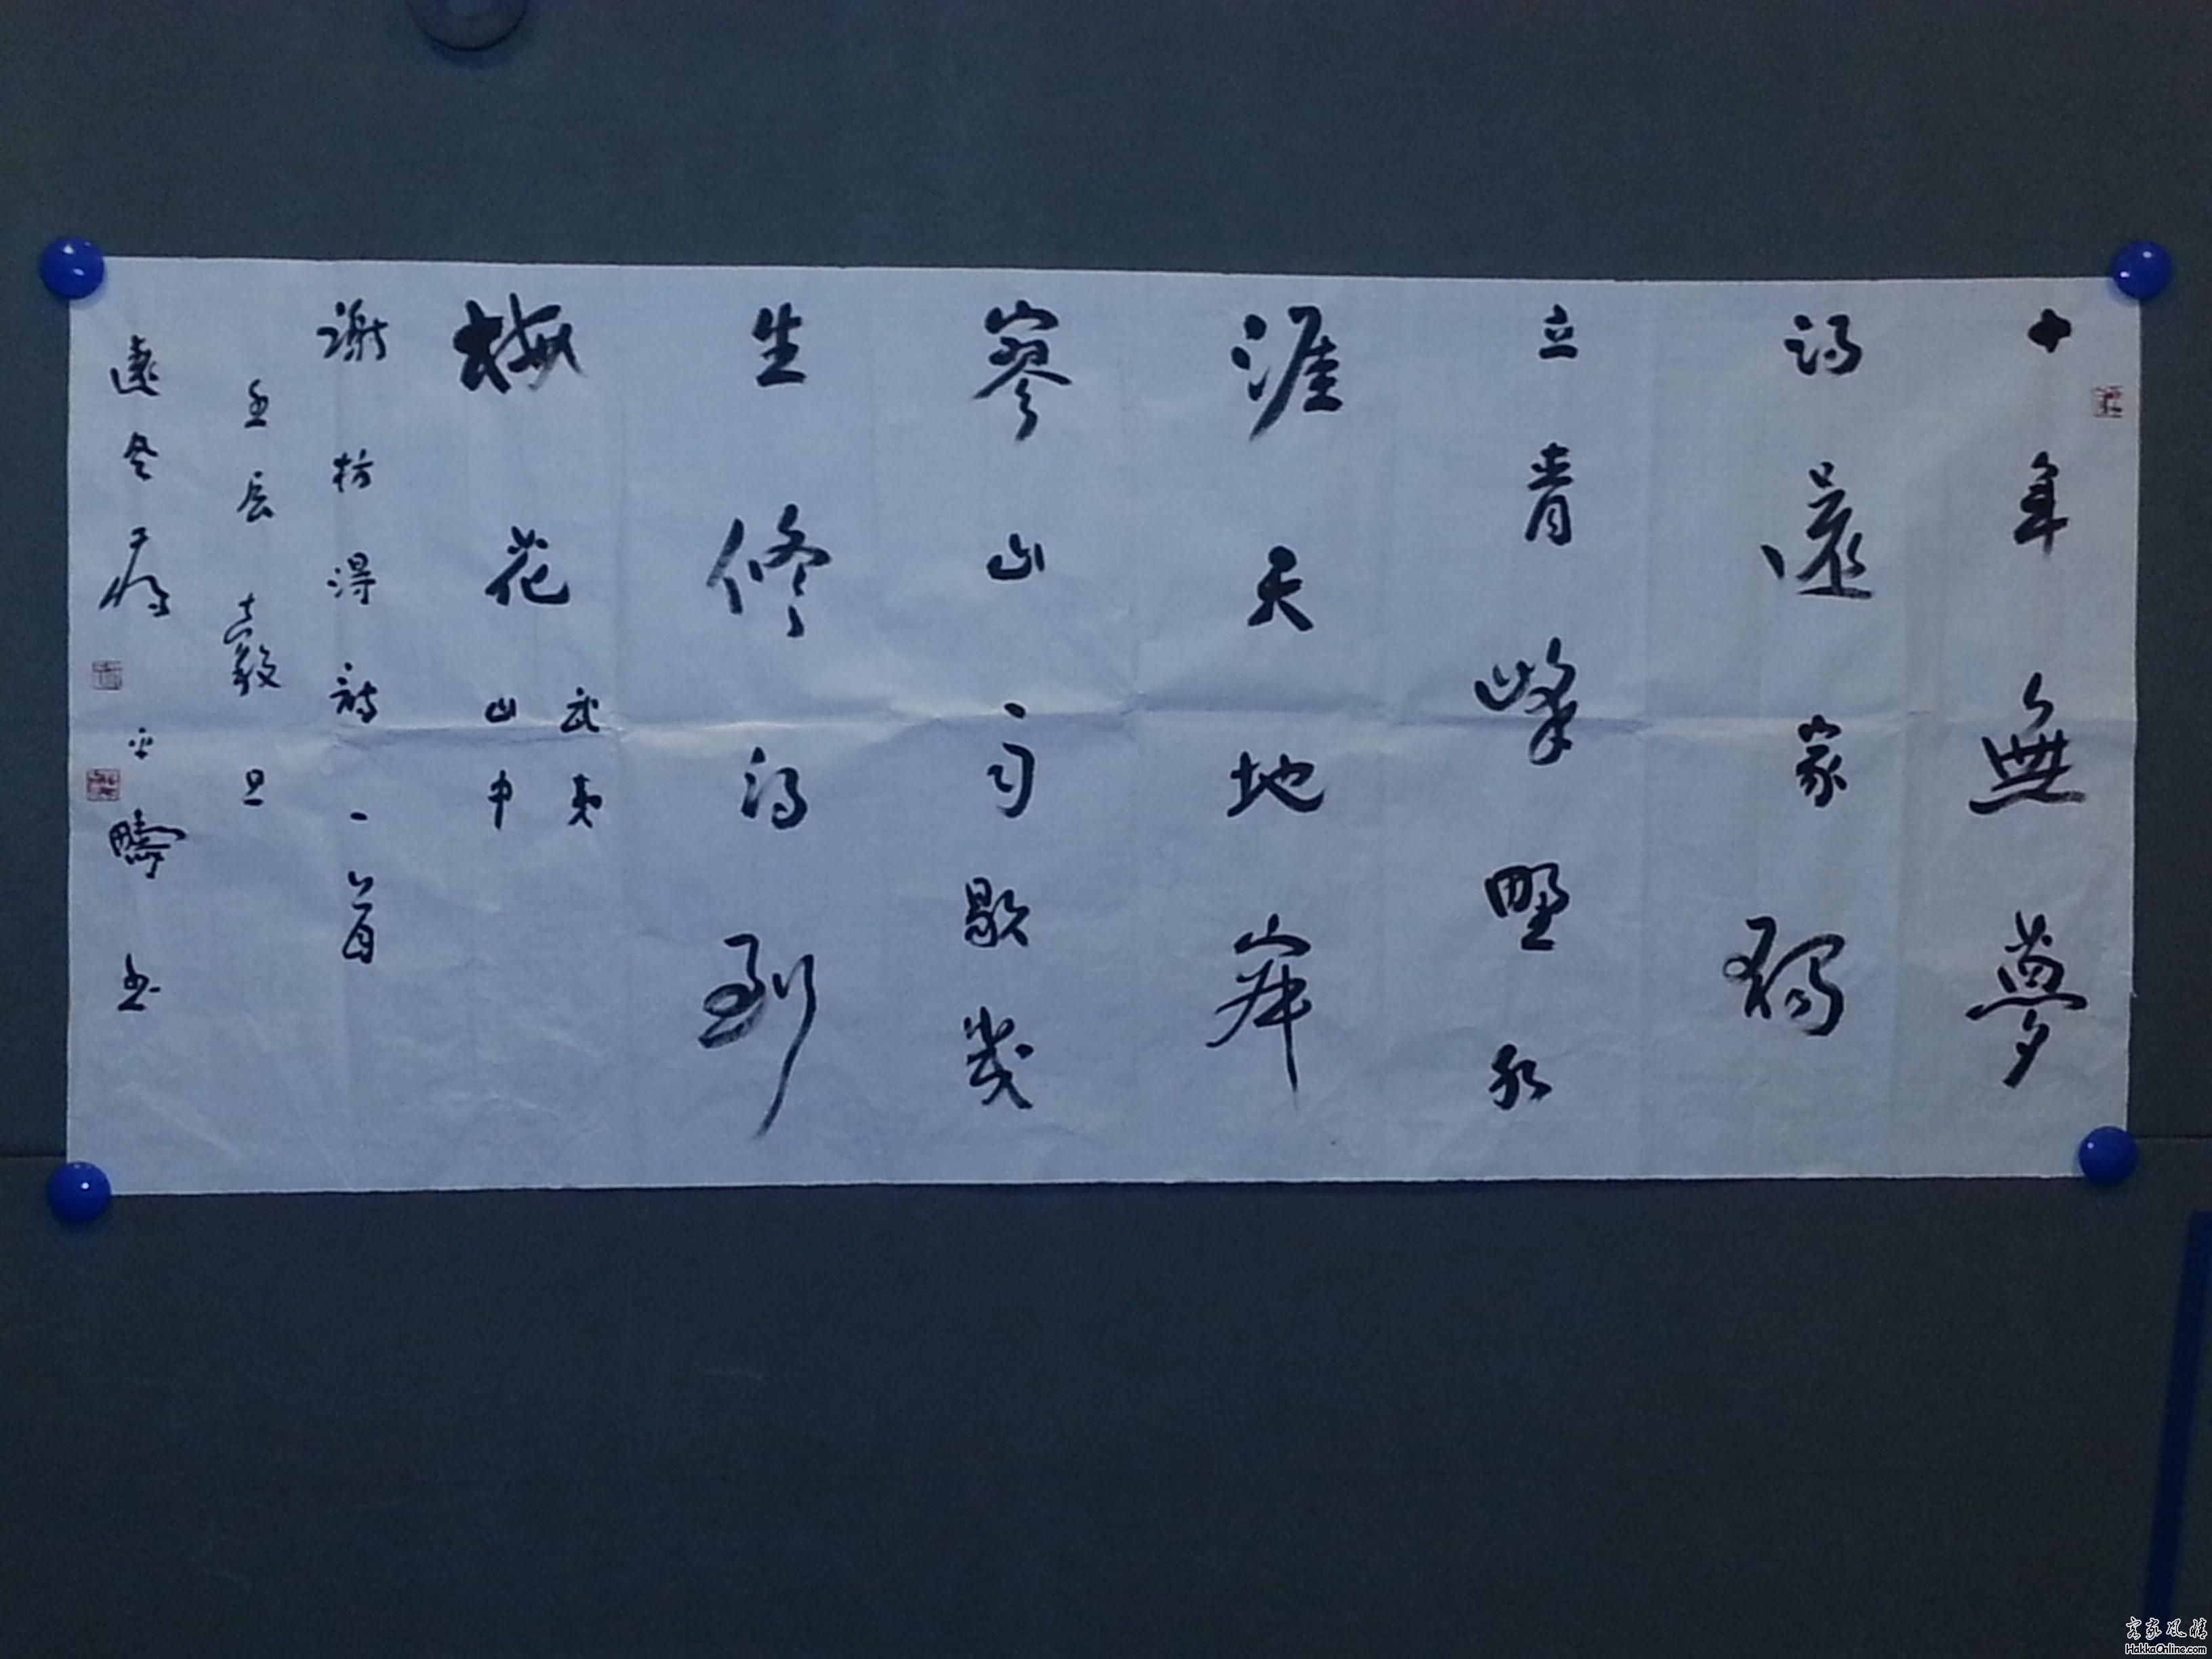 十年無夢
得還家獨
立青峰野水
涯天地寂
寥山雨歇幾
生修得到
梅花
武夷
山中
謝枋得詩一首
壬辰
旦
書
客家风情
HakkaOnline.com